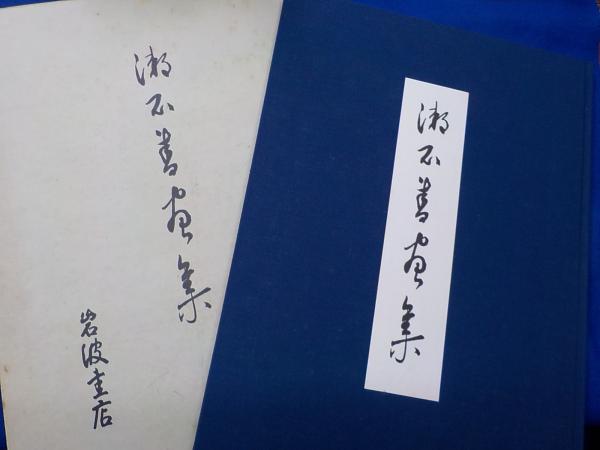 漱石書画集
岩波書店
漱石書画集